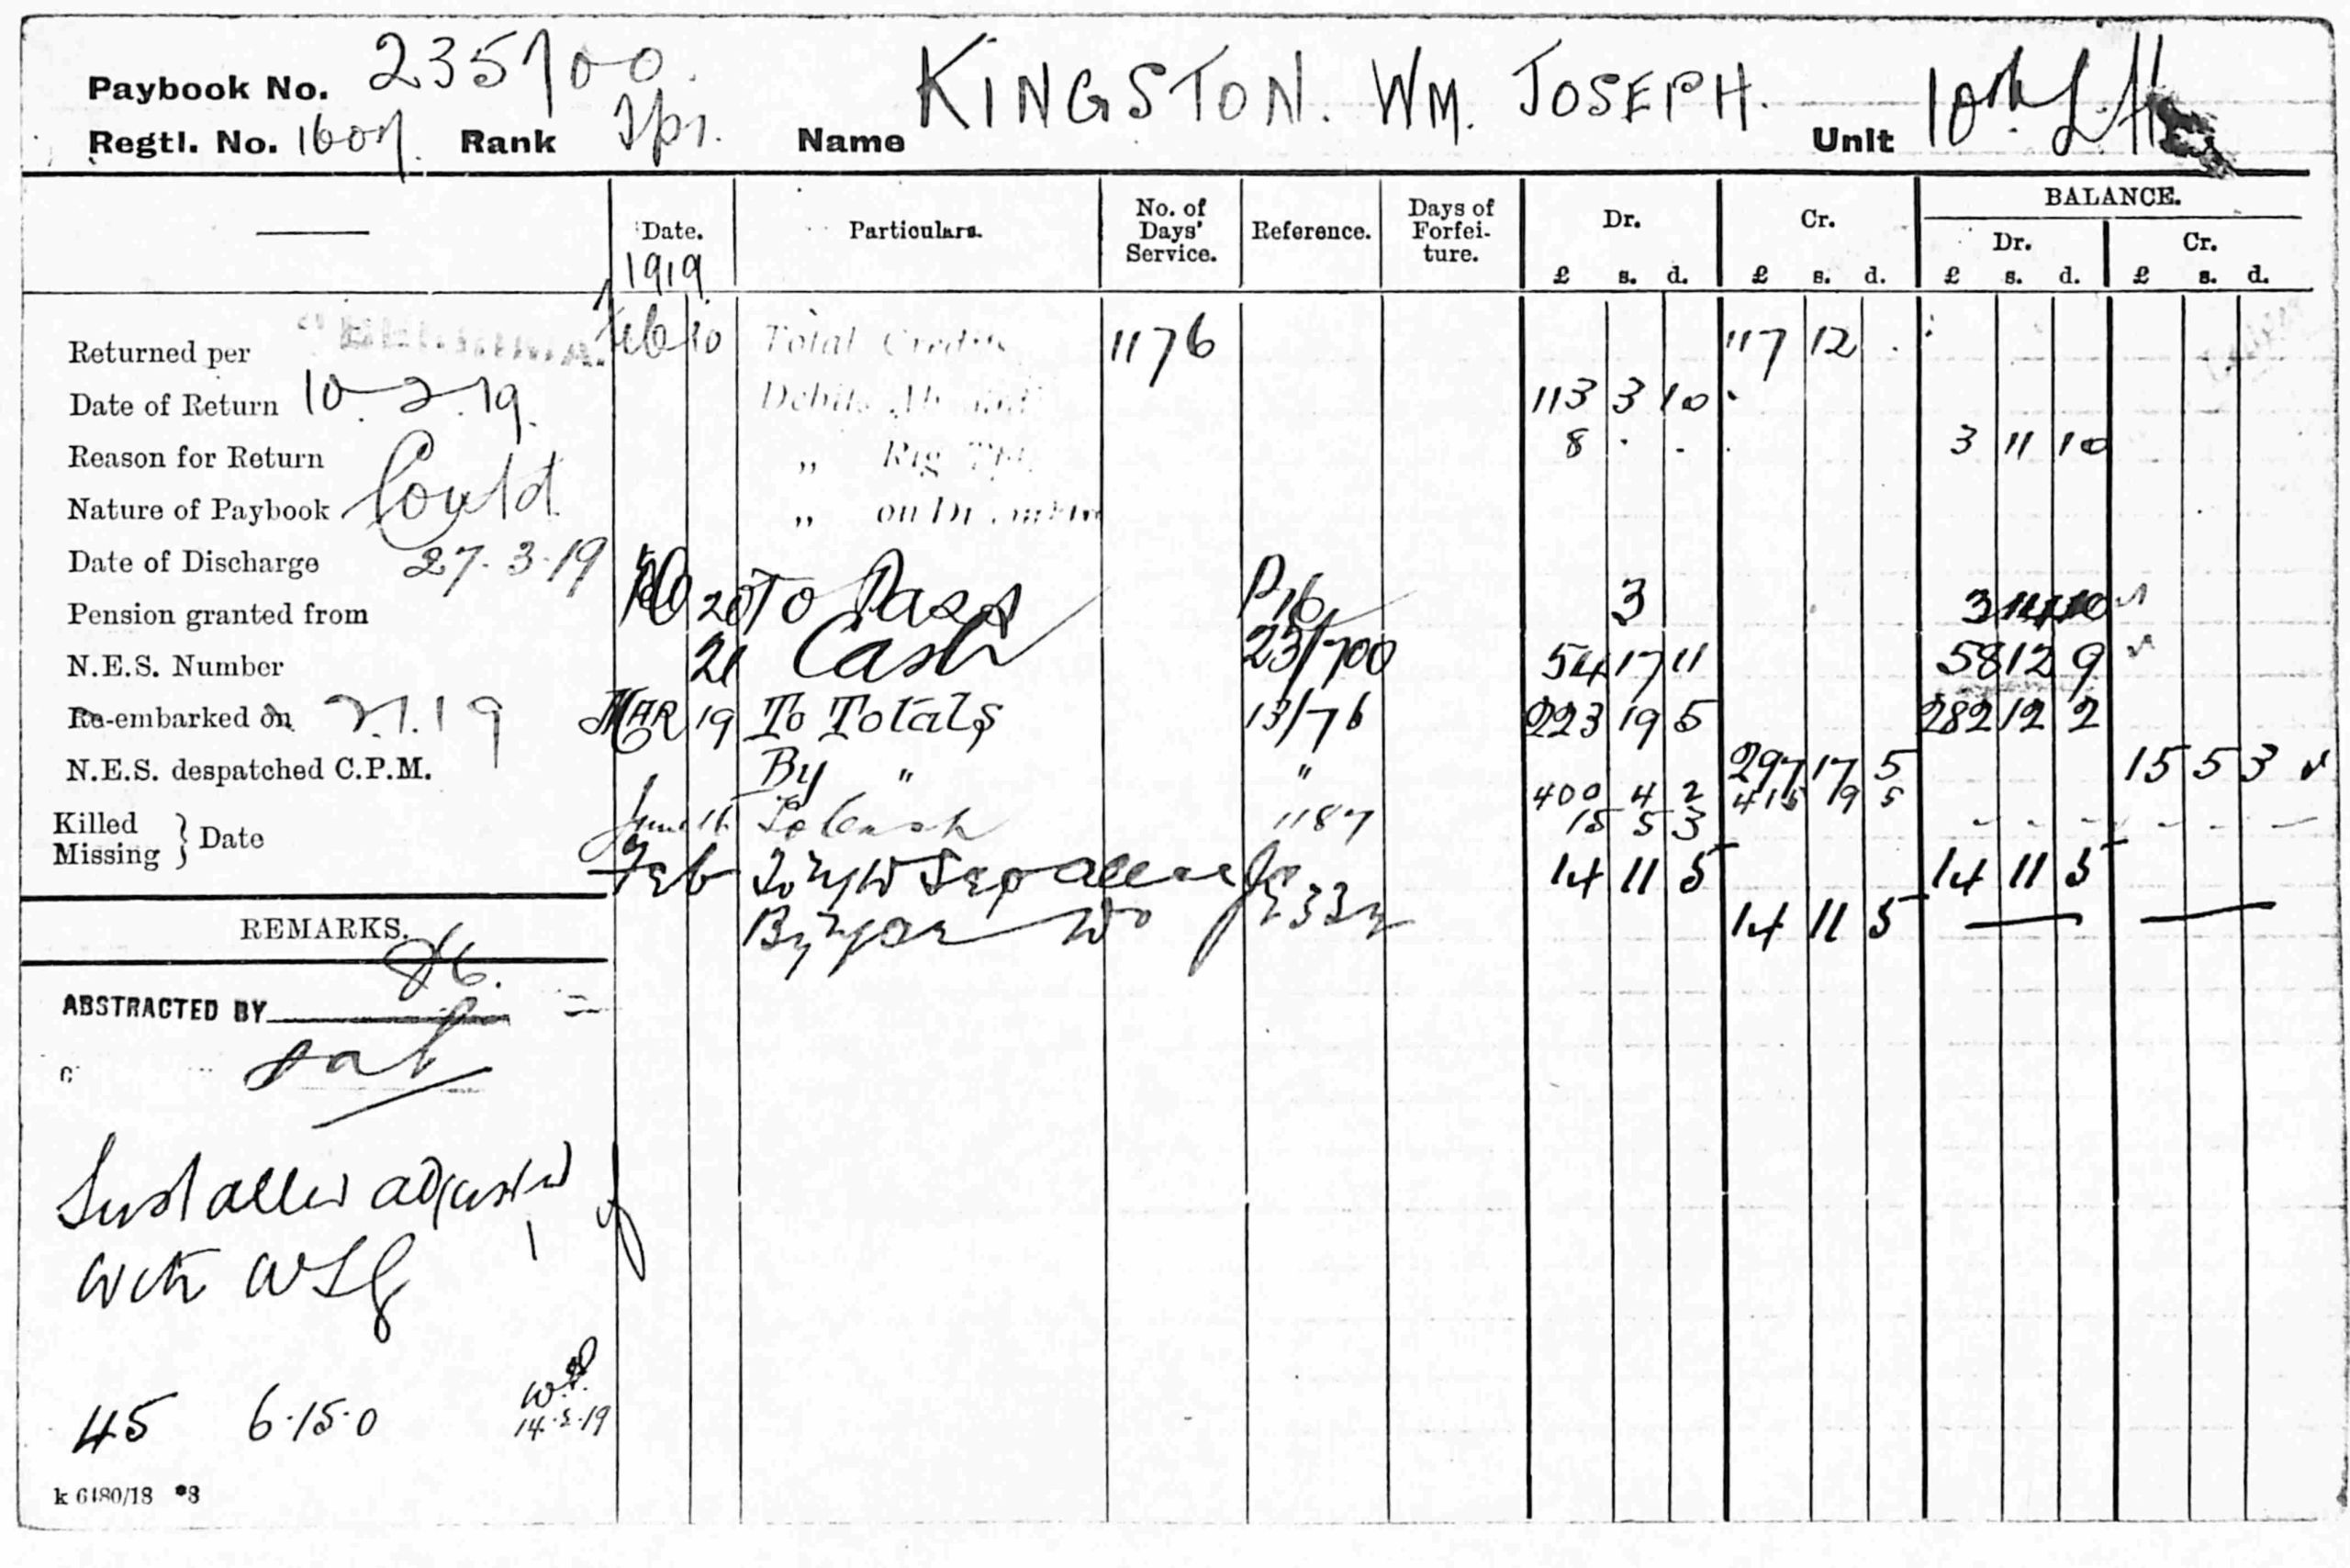 Paybook No. 235700.
Regtl. No. 1607. Rank Tpr. Name KINGSTON. WM. JOSEPH. Unit 10th L.H.
Date. Particulars. No. of Days' Service. Reference. Days of Forfei- ture. Dr. Cr. BALANCE.
Dr. Cr.
£ s. d. £ s. d. £ s. d. £ s. d.
1919
Returned per
Feb 10 Total Credits 1176 117 12
Date of Return 10.2.19.
Debits Abroad 113 3 10
Reason for Return
" 8 . . 3 11 10
Nature of Paybook
" on
Date of Discharge 27.3.19
Pension granted from
20 To Pass P16 3 3 14 10
N.E.S. Number
21 Cash 23/700 54 17 11 58 12 9
Re-embarked on
MAR 19 To Totals 13/76 223 19 5 282 12 2
N.E.S. despatched C.P.M.
By " " 297 17 5 15 5 3
400 4 2 415 19 5
Killed
Missing } Date
June 16 To Cash 1187 15 5 3
Feb To Sep 14 11 5 14 11 5
REMARKS.
By 14 11 5
ABSTRACTED BY
Sust adjusted
with
45 6.15.0
14.5.19
k 6480/18 *3